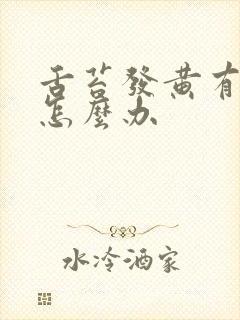 舌苔發黃有
怎麼办
水冷酒家